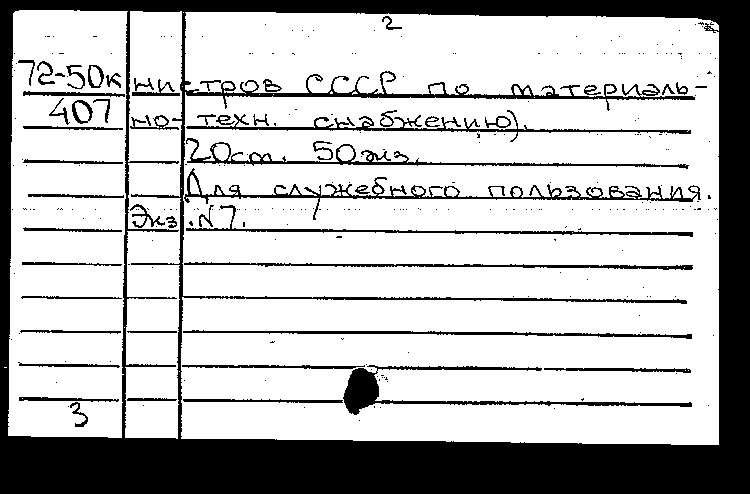 2
72-50к нистров СССР по материаль-
407 но-техн. снабжению).
20ст. 50экз.
Для служебного пользования.
Экз.N7.
3